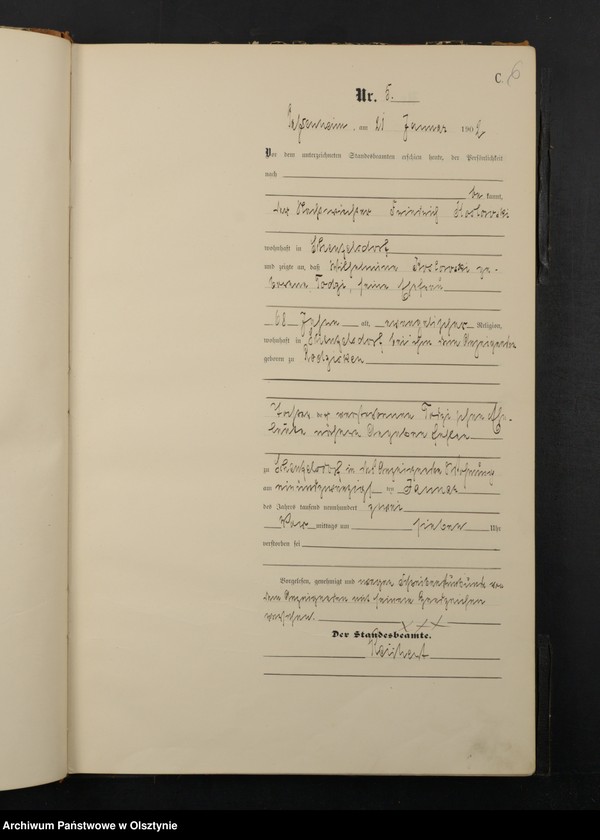 C. 6
Nr. 5.
am 21 Januar 1902
Vor dem unterzeichneten Standesbeamten erschien heute, der Persönlichkeit
nach
be kannt,
der Friedrich Koslowski
wohnhaft in
und zeigte an, daß Wilhelmine Koslowski ge-
borene seine Ehefrau
68 Jahre alt, evangelischer Religion,
wohnhaft in bei ihm dem Anzeigenden
geboren zu
Tochter der verstorbenen schen Ehe-
leute nähere Angaben fehlen
zu in des Anzeigenden Wohnung
am ein und zwanzigsten Januar
des Jahres tausend neunhundert zwei
Vor mittags um sieben Uhr
verstorben sei
Vorgelesen, genehmigt und wegen Schreibensunkunde von
dem Anzeigenden mit seinem Handzeichen
versehen. XXX
Der Standesbeamte.
Reichert
Archiwum Państwowe w Olsztynie